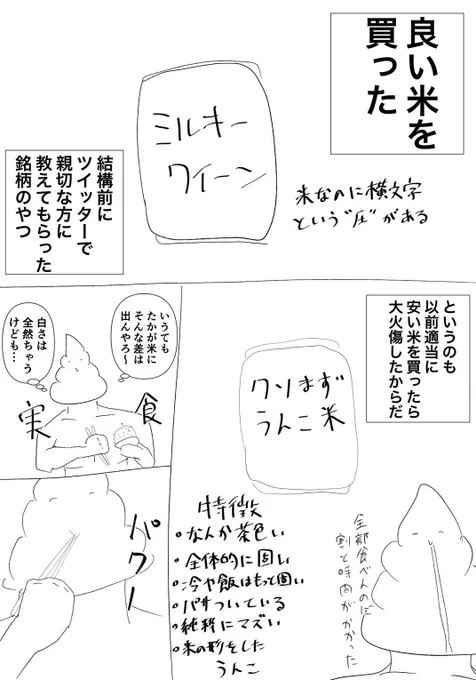 良い米を
買った
ミルキー
クイーン
米なのに横文字
という“圧”がある
結構前に
ツイッターで
親切な方に
教えてもらった
銘柄のやつ
というのも
以前適当に
安い米を買ったら
大火傷したからだ
クソまず
うんこ米
特徴
・なんか茶色い
・全体的に固い
・冷や飯はもって固い
・パサついている
・純粋にマズい
・米の形をした
うんこ
全部食べんのに
割と時間がかかった
いうても
たかが米に
そんな差は
出んやろ〜
白さは
全然ちゃう
けども…
実食
パクー